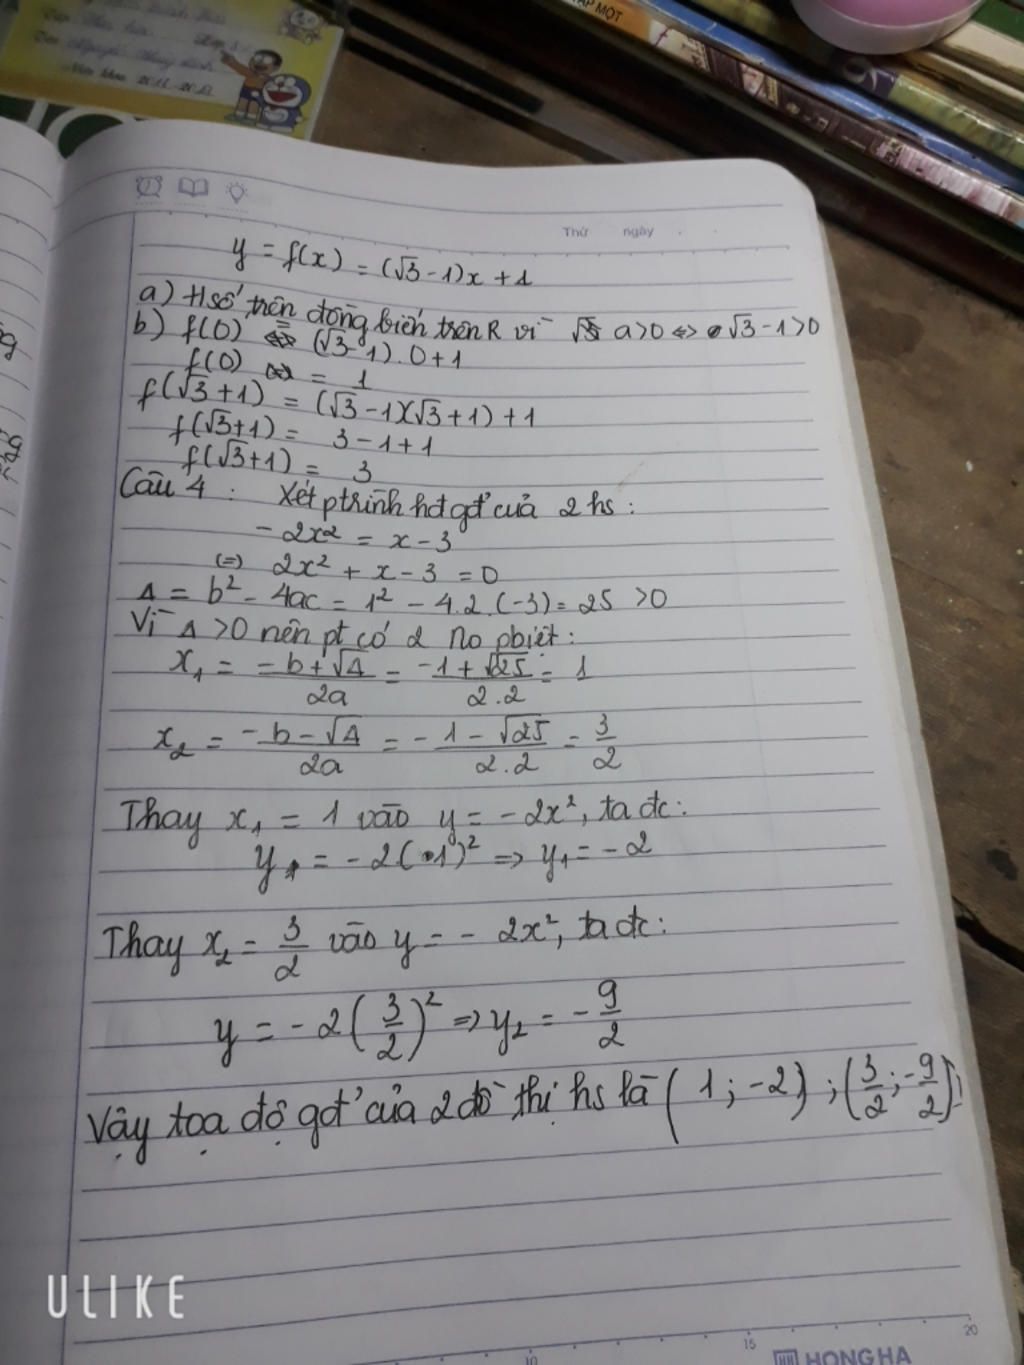 TẬP MỘT
Thứ ngày
y = f(x) = (√3 - 1)x + 1
a) Hsố trên đồng biến trên R vì a>0 <=> √3 - 1 > 0
b) f(0) = (√3 - 1) . 0 + 1
f(0) = 1
f(√3 + 1) = (√3 - 1)(√3 + 1) + 1
f(√3 + 1) = 3 - 1 + 1
f(√3 + 1) = 3
Câu 4 : Xét ptrình hđgđ của 2 hs :
- 2x² = x - 3
(=) 2x² + x - 3 = 0
Δ = b² - 4ac = 1² - 4.2.(-3) = 25 > 0
Vì Δ > 0 nên pt có 2 no pbiệt :
x₁ = (-b + √Δ)/2a = (-1 + √25)/2.2 = 1
x₂ = (-b - √Δ)/2a = (-1 - √25)/2.2 = 3/2
Thay x₁ = 1 vào y = - 2x², ta đc :
y₁ = - 2(1)² => y₁ = - 2
Thay x₂ = 3/2 vào y = - 2x², ta đc :
y = - 2(3/2)² => y₂ = - 9/2
Vậy tọa độ gđ của 2 đồ thị hs là (1 ; -2) ; (3/2 ; -9/2)
ULIKE
10 15 20
HONG HA